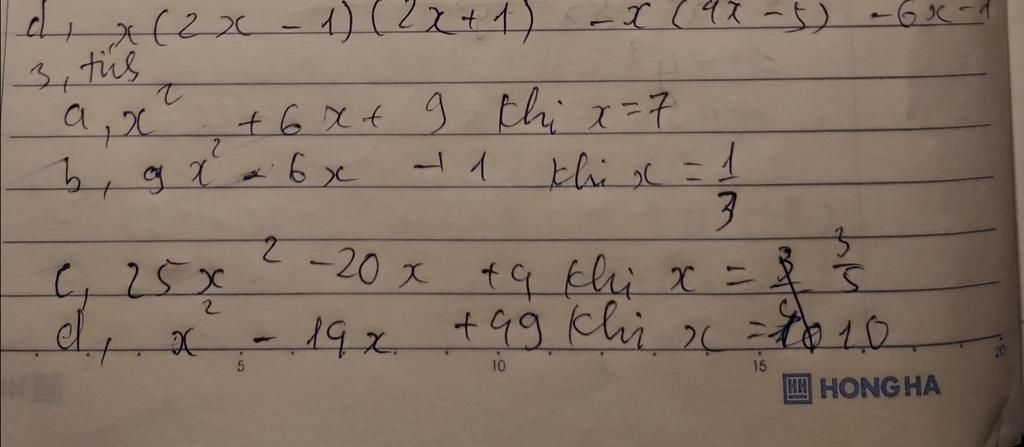 d, x(2x - 1)(2x+1) - x(4x - 5) - 6x - 1
3, tís
a, x² + 6x + 9 khi x = 7
b, 9x² - 6x + 1 khi x = 1/3
c, 25x² - 20x + 4 khi x = 3/5
d, x² - 14x + 49 khi x = 10
5 10 15 20
HH HONG HA